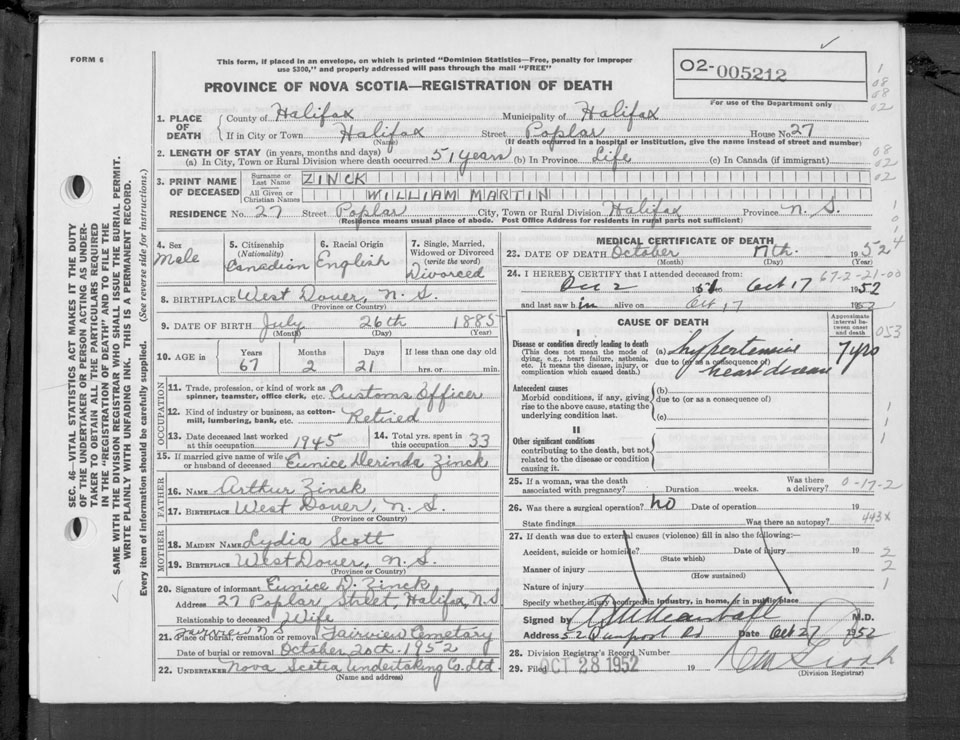 FORM 6
This form, if placed in an envelope, on which is printed "Dominion Statistics—Free, penalty for improper
use $300," and properly addressed will pass through the mail "FREE"
PROVINCE OF NOVA SCOTIA—REGISTRATION OF DEATH
O2-005212
For use of the Department only
1. PLACE OF DEATH County of Halifax Municipality of Halifax
If in City or Town Halifax Street Poplar House No. 27
(Name) (If death occurred in a hospital or institution, give the name instead of street and number)
2. LENGTH OF STAY (in years, months and days)
(a) In City, Town or Rural Division where death occurred 51 years (b) In Province Life (c) In Canada (if immigrant)
3. PRINT NAME OF DECEASED Surname or Last Name ZINCK
All Given or Christian Names WILLIAM MARTIN
RESIDENCE No. 27 Street Poplar City, Town or Rural Division Halifax Province N. S.
(Residence means usual place of abode. Post Office Address for residents in rural parts not sufficient)
4. Sex Male
5. Citizenship (Nationality) Canadian
6. Racial Origin English
7. Single, Married, Widowed or Divorced (write the word) Divorced
8. BIRTHPLACE West Dover, N. S.
(Province or Country)
9. DATE OF BIRTH July 26th 1885
(Month) (Day) (Year)
10. AGE in Years 67 Months 2 Days 21 If less than one day old hrs. or min.
OCCUPATION
11. Trade, profession, or kind of work as spinner, teamster, office clerk, etc. Customs Officer
12. Kind of industry or business, as cotton-mill, lumbering, bank, etc. Retired
13. Date deceased last worked at this occupation 1945
14. Total yrs. spent in this occupation 33
15. If married give name of wife or husband of deceased Eunice Derinda Zinck
FATHER
16. NAME Arthur Zinck
17. BIRTHPLACE West Dover, N. S.
(Province or Country)
MOTHER
18. MAIDEN NAME Lydia Scott
19. BIRTHPLACE West Dover, N. S.
(Province or Country)
20. Signature of informant Eunice D. Zinck
Address 27 Poplar Street, Halifax, N.S
Relationship to deceased Wife
Fairview N S
21. Place of burial, cremation or removal Fairview Cemetary
Date of burial or removal October 20th 1952
22. UNDERTAKER Nova Scotia Undertaking Co. Ltd.
(Name and address)
MEDICAL CERTIFICATE OF DEATH
23. DATE OF DEATH October 17th. 1952
(Month) (Day) (Year)
24. I HEREBY CERTIFY that I attended deceased from:
1951 Oct 17 1952
67-2-21-00
and last saw him alive on Oct 17 1952
CAUSE OF DEATH
Approximate interval between onset and death
053
I
Disease or condition directly leading to death
(This does not mean the mode of dying, e.g., heart failure, asthenia, etc. It means the disease, injury, or complication which caused death.)
(a) hypertensive 7 yrs
due to (or as a consequence of)
heart disease
Antecedent causes
Morbid conditions, if any, giving rise to the above cause, stating the underlying condition last.
(b)
due to (or as a consequence of)
(c)
II
Other significant conditions
contributing to the death, but not related to the disease or condition causing it.
25. If a woman, was the death associated with pregnancy? Duration weeks. Was there a delivery? 0-17-2
26. Was there a surgical operation? no Date of operation 19
443x
State findings Was there an autopsy?
27. If death was due to external causes (violence) fill in also the following:—
Accident, suicide or homicide? Date of injury 19
(State which)
Manner of injury
(How sustained)
Nature of injury
Specify whether injury occurred in industry, in home, or in public place
Signed by M.D.
Address 52 Rd Date Oct 27 1952
28. Division Registrar's Record Number
29. Filed OCT 28 1952 19
(Division Registrar)
SEC. 46—VITAL STATISTICS ACT MAKES IT THE DUTY
OF THE UNDERTAKER OR PERSON ACTING AS UNDER-
TAKER TO OBTAIN ALL THE PARTICULARS REQUIRED
IN THE "REGISTRATION OF DEATH" AND TO FILE THE
SAME WITH THE DIVISION REGISTRAR WHO SHALL ISSUE THE BURIAL PERMIT.
WRITE PLAINLY WITH UNFADING INK. THIS IS A PERMANENT RECORD.
Every item of information should be carefully supplied. (See reverse side for instructions.)